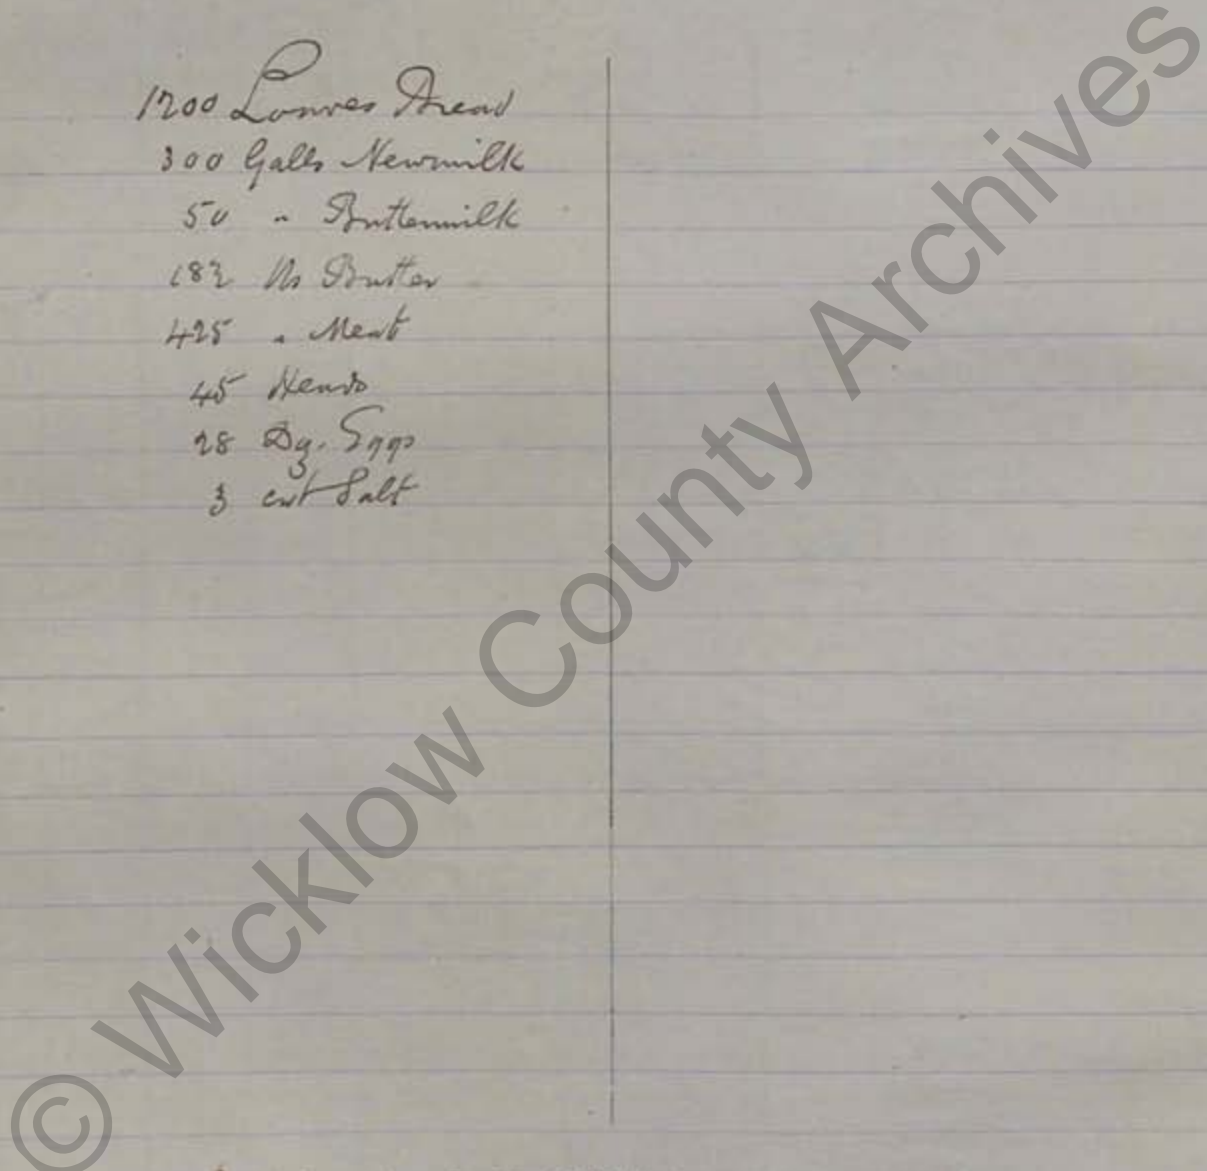 1200 Loaves Bread
300 Galls Newmilk
50 " Buttermilk
182 lbs Butter
425 " Meat
45 Heads
28 Dz. Eggs
3 cwt Salt
© Wicklow County Archives